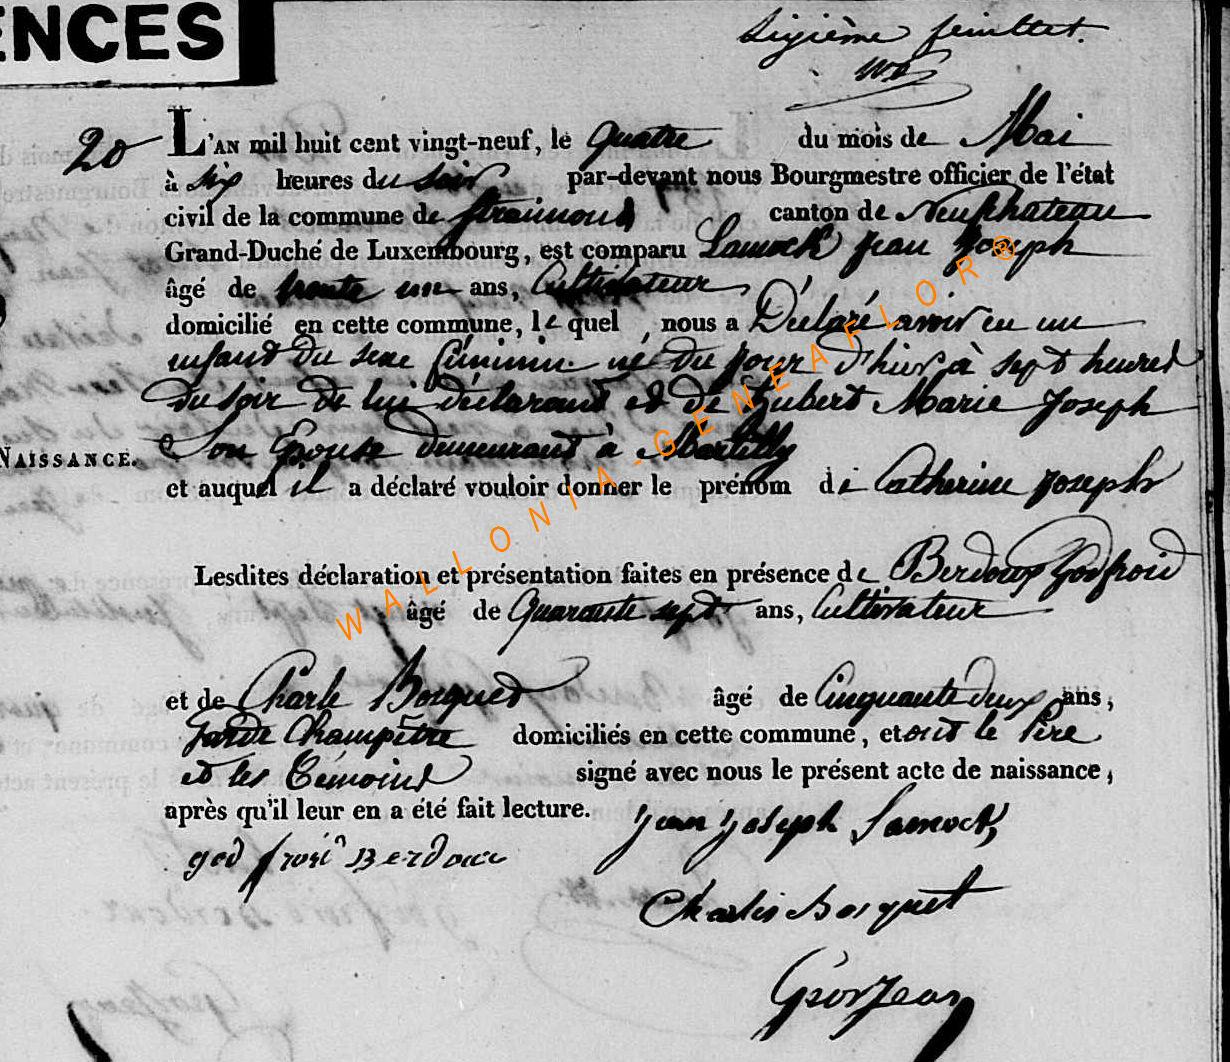 ENCES
Sixième feuillet.
20
L'AN mil huit cent vingt-neuf, le quatre du mois de Mai
à six heures du soir par-devant nous Bourgmestre officier de l'état
civil de la commune de Straimont canton de Neufchateau
Grand-Duché de Luxembourg, est comparu Lamock Jean Joseph
âgé de trente un ans, Cultivateur
domicilié en cette commune, le quel nous a Déclaré avoir eu un
enfant du sexe féminin né du jour d'hier à sept heures
du soir de lui déclarant et de Hubert Marie Joseph
NAISSANCE. Son Epouse demeurant à Martilly
et auquel il a déclaré vouloir donner le prénom de Catherine Joseph
Lesdites déclaration et présentation faites en présence de Berdoux Godfroid
âgé de Quarante sept ans, Cultivateur
et de Charle Bosquet âgé de Cinquante deux ans,
Garde Champêtre domiciliés en cette commune, et ont le Père
et les Témoins signé avec nous le présent acte de naissance,
après qu'il leur en a été fait lecture.
Jean Joseph Lamock
godfroid Berdoux
Charles Bosquet
Grosjean
WALLONIA-GENEAFLOR®